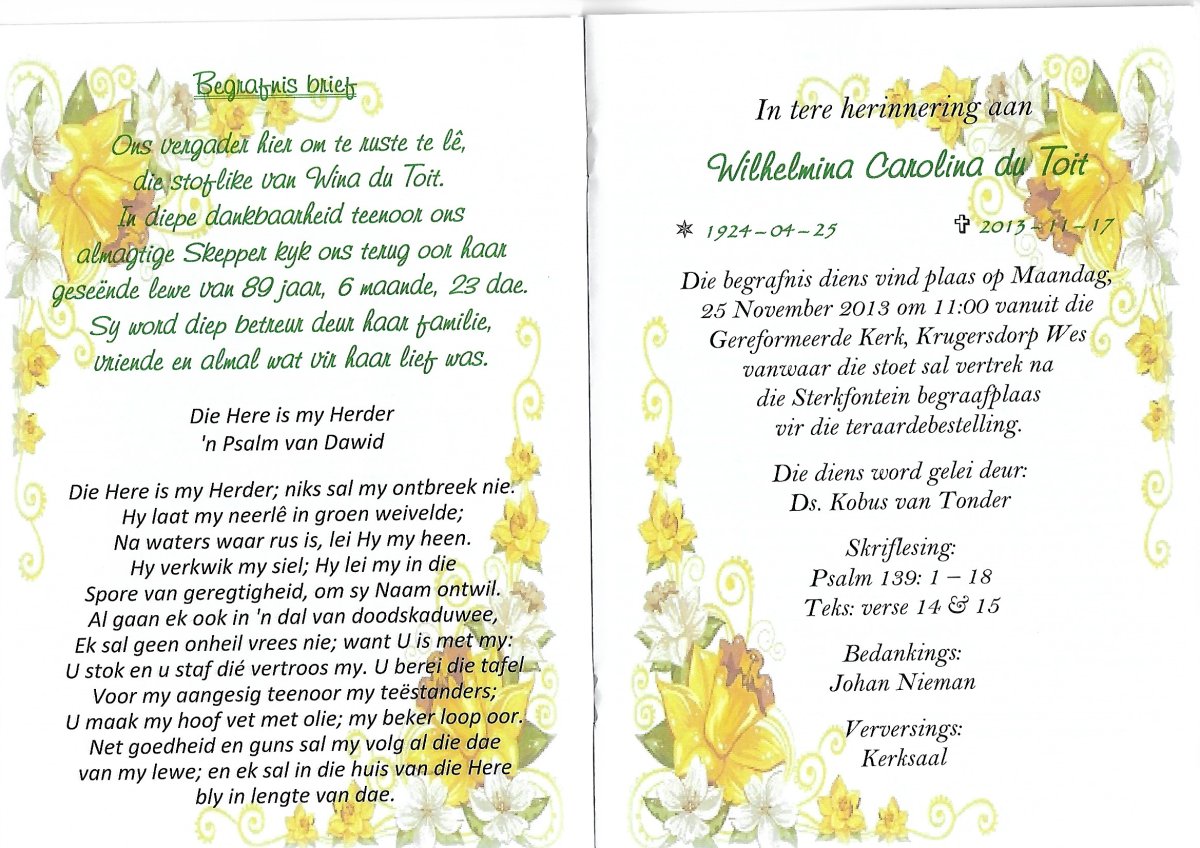 Begrafnis brief
Ons vergader hier om te ruste te lê,
die stoflike van Wina du Toit.
In diepe dankbaarheid teenoor ons
almagtige Skepper kyk ons terug oor haar
geseënde lewe van 89 jaar, 6 maande, 23 dae.
Sy word diep betreur deur haar familie,
vriende en almal wat vir haar lief was.
Die Here is my Herder
'n Psalm van Dawid
Die Here is my Herder; niks sal my ontbreek nie.
Hy laat my neerlê in groen weivelde;
Na waters waar rus is, lei Hy my heen.
Hy verkwik my siel; Hy lei my in die
Spore van geregtigheid, om sy Naam ontwil.
Al gaan ek ook in 'n dal van doodskaduwee,
Ek sal geen onheil vrees nie; want U is met my:
U stok en u staf dié vertroos my. U berei die tafel
Voor my aangesig teenoor my teëstanders;
U maak my hoof vet met olie; my beker loop oor.
Net goedheid en guns sal my volg al die dae
van my lewe; en ek sal in die huis van die Here
bly in lengte van dae.
In tere herinnering aan
Wilhelmina Carolina du Toit
✵ 1924-04-25 ✞ 2013-11-17
Die begrafnis diens vind plaas op Maandag,
25 November 2013 om 11:00 vanuit die
Gereformeerde Kerk, Krugersdorp Wes
vanwaar die stoet sal vertrek na
die Sterkfontein begraafplaas
vir die teraardebestelling.
Die diens word gelei deur:
Ds. Kobus van Tonder
Skriflesing:
Psalm 139: 1 – 18
Teks: verse 14 & 15
Bedankings:
Johan Nieman
Verversings:
Kerksaal